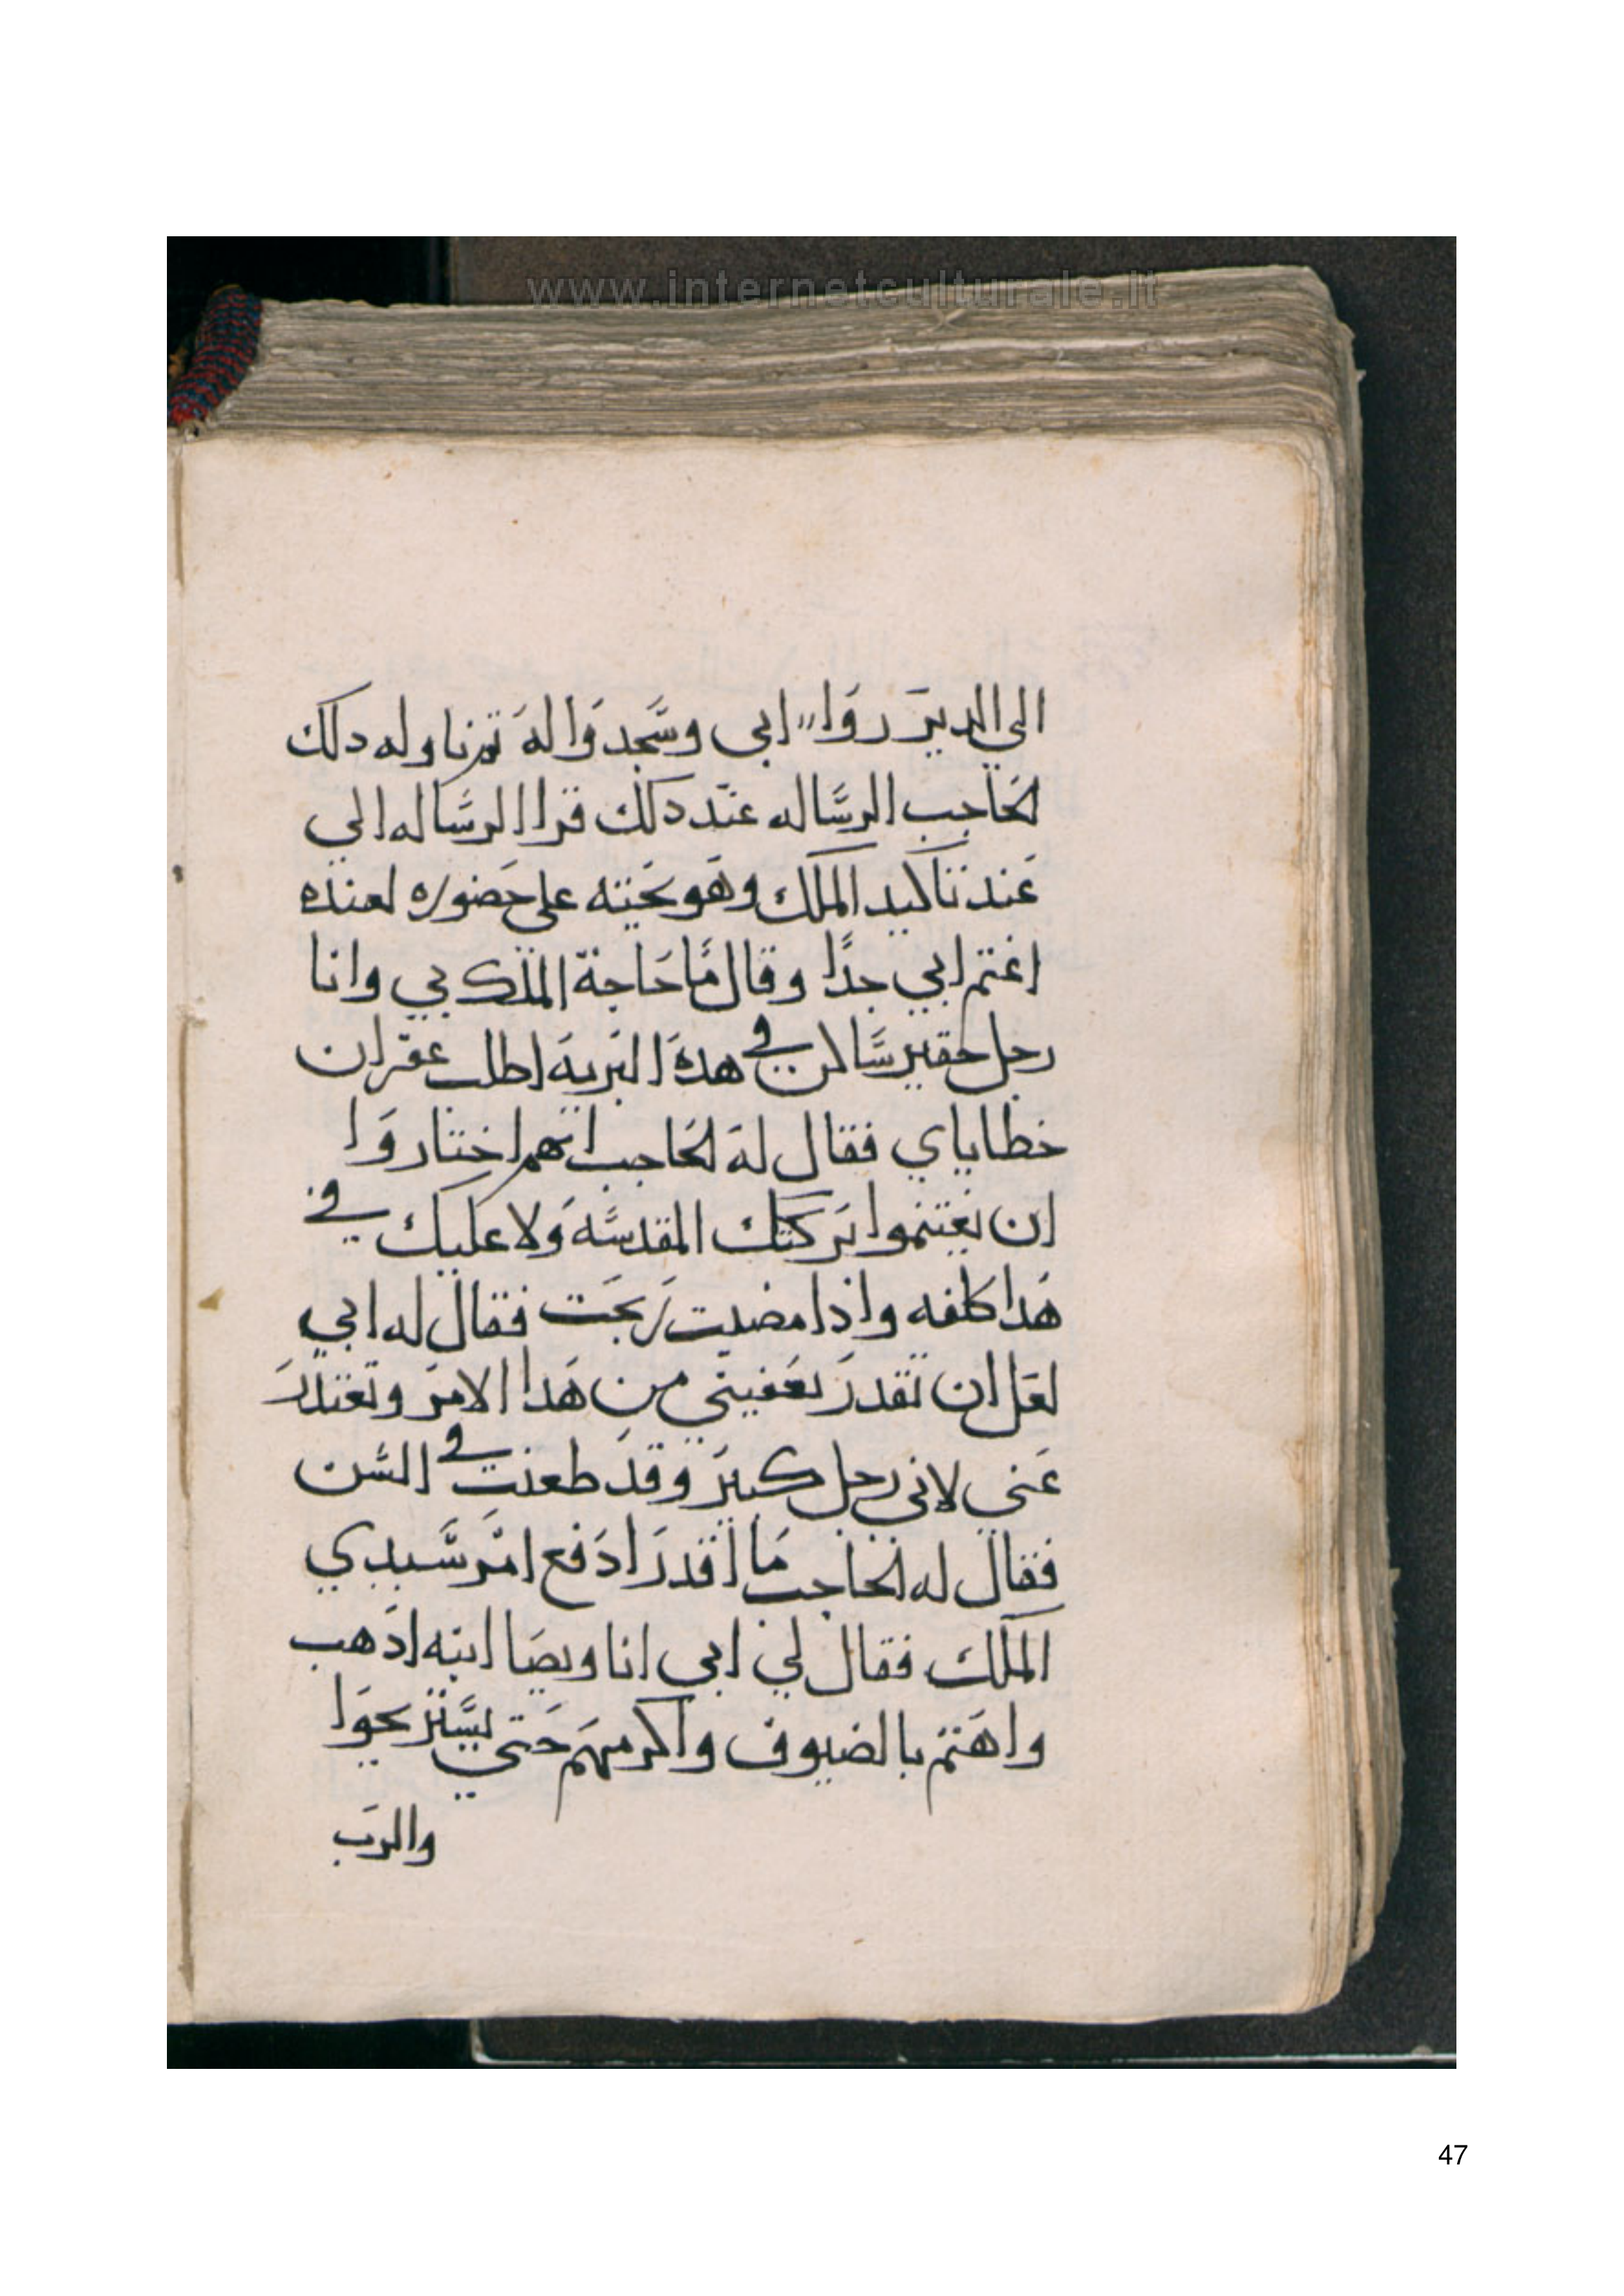 www.internetculturale.it
الي الدير روا ابي وسجدوا له ثم ناوله دلك
لحاجب الرساله عند دلك قرا الرساله الي
عند تاكيد الملك وهو يحثه على حضوره لعنده
اغتم ابي جدًا وقال ما حاجة الملك بي وانا
رجل حقير ساكن في هده البريه اطلب غفران
خطاياي فقال له لحاجب انهم اختاروا
ان يغتنموا بركتك المقدسه ولا عليك في
هدا كلفه واذا مضيت ربحت فقال له ابي
لعل ان تقدر تعفيني من هدا الامر وتعتدر
عني لاني رجل كبير وقد طعنت في السن
فقال له لحاجب ما اقدر ادفع امر سيدي
الملك فقال لي ابي انا ويصا ابنه ادهب
واهتم بالضيوف واكرمهم حتي يستريحوا
والرب
47